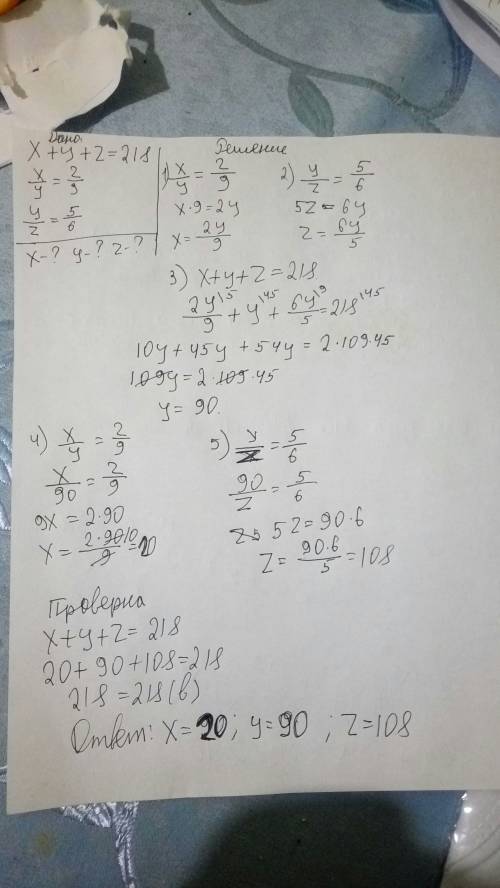 Дано:
x+y+z=218
x/y = 2/9
y/z = 5/6
x-? y-? z-?
Решение
1) x/y = 2/9
x·9=2y
x= 2y/9
2) y/z = 5/6
5z=6y
z= 6y/5
3) x+y+z=218
2y/9 \5 + y \45 + 6y/5 \9 =218 \45
10y+45y+54y=2·109·45
109y=2·109·45
y=90.
4) x/y = 2/9
x/90 = 2/9
9x=2·90
x= 2·90/9 10 =20
5) y/z = 5/6
90/z = 5/6
5z=90·6
z= 90·6/5 =108
Проверка
x+y+z=218
20+90+108=218
218=218(в)
Ответ: x=20; y=90; z=108